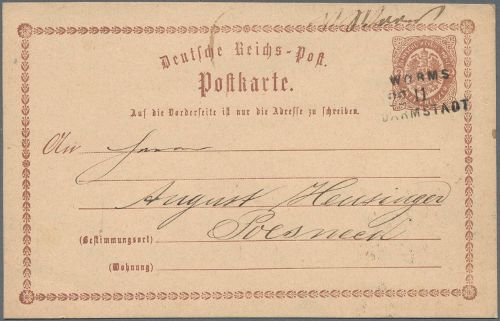 Deutsche Reichs-Post.
Postkarte.
Auf die Vorderseite ist nur die Adresse zu schreiben.
WORMS
11
DARMSTADT
An Herrn
August Heusinger
(Bestimmungsort) Poesneck
(Wohnung)